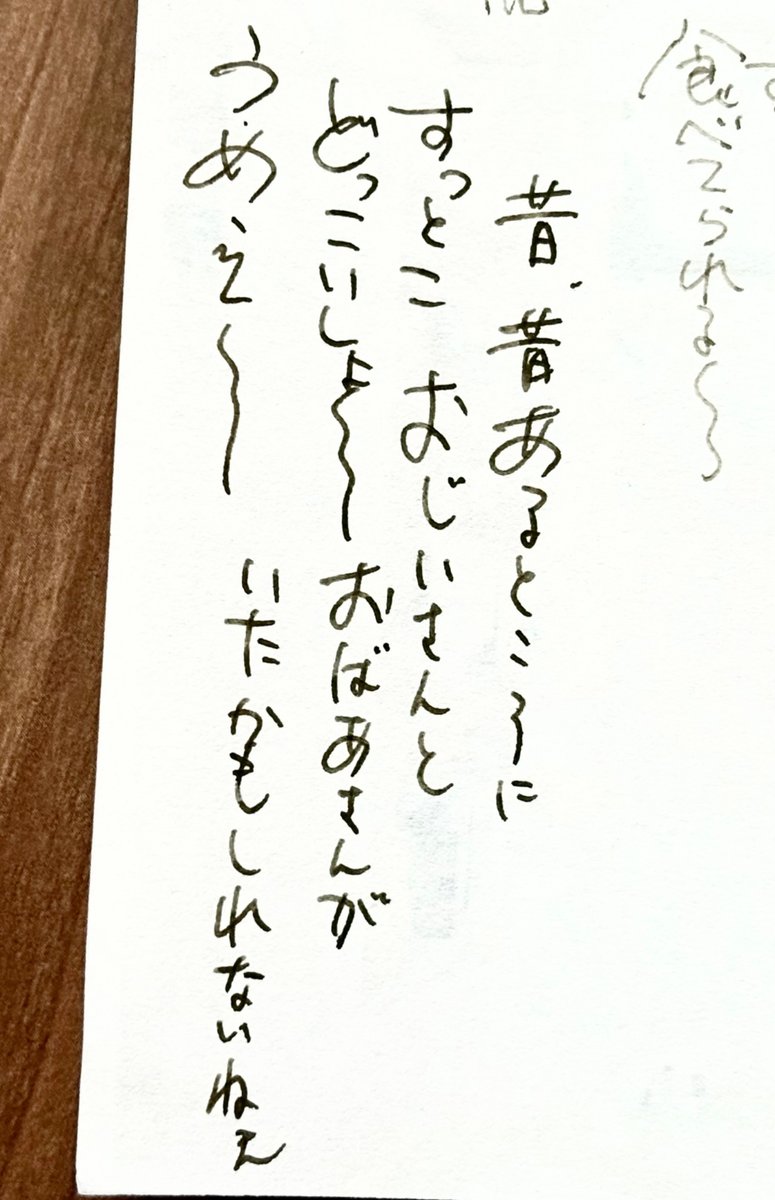 食べてられる〜〜
昔、昔あるところに
すっとこ おじいさんと
どっこいしょ〜〜 おばあさんが
うめぇ〜〜 いたかもしれないねぇ